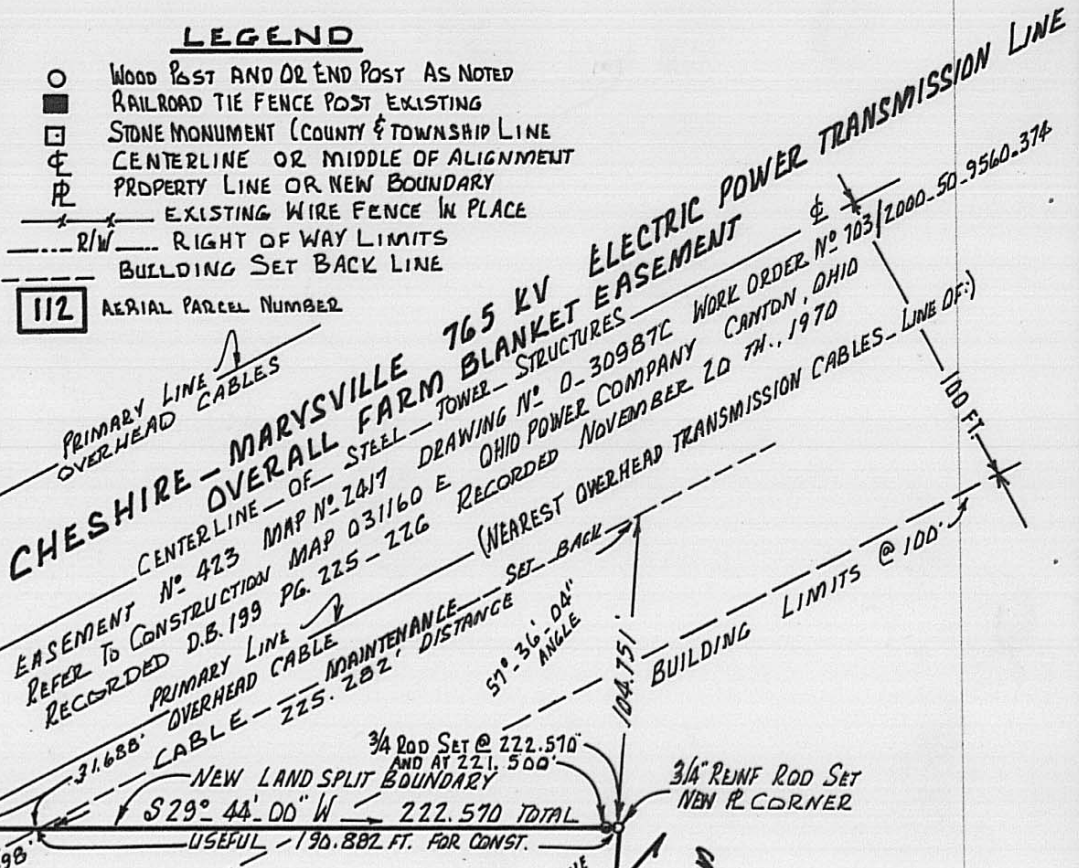 LEGEND
WOOD POST AND OR END POST AS NOTED
RAILROAD TIE FENCE POST EXISTING
STONE MONUMENT (COUNTY & TOWNSHIP LINE
℄ CENTERLINE OR MIDDLE OF ALIGNMENT
PL PROPERTY LINE OR NEW BOUNDARY
x x EXISTING WIRE FENCE IN PLACE
R/W RIGHT OF WAY LIMITS
BUILDING SET BACK LINE
112 AERIAL PARCEL NUMBER
PRIMARY LINE
OVERHEAD CABLES
CHESHIRE - MARYSVILLE 765 KV ELECTRIC POWER TRANSMISSION LINE
OVERALL FARM BLANKET EASEMENT
CENTERLINE - OF - STEEL - TOWER - STRUCTURES ℄
EASEMENT Nº 423 MAP Nº 2417 DRAWING Nº O-30987C WORK ORDER Nº 703/2000-50-9560-374
REFER TO CONSTRUCTION MAP 031160 E OHIO POWER COMPANY CANTON, OHIO
RECORDED D.B. 199 PG. 225-226 RECORDED NOVEMBER 20 TH., 1970
PRIMARY LINE
OVERHEAD CABLE
(NEAREST OVERHEAD TRANSMISSION CABLES - LINE OF:)
100 FT.
CABLE - MAINTENANCE - SET - BACK
225.282' DISTANCE
57°-36'-04"
ANGLE
104.751'
BUILDING LIMITS @ 100'
31.688'
3/4 ROD SET @ 222.570'
AND AT 221.500'
NEW LAND SPLIT BOUNDARY
3/4" REINF ROD SET
NEW PL CORNER
S 29° 44' 00" W 222.570 TOTAL
USEFUL - 190.882 FT. FOR CONST.
98'